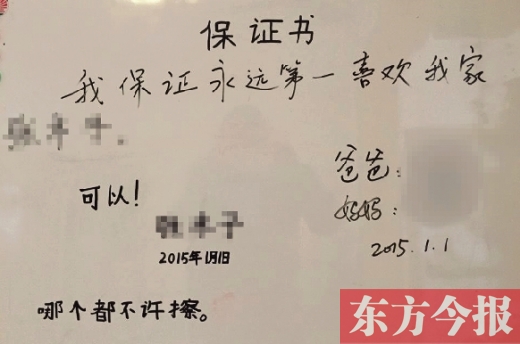 保证书
我保证永远第一喜欢我家
爸爸：
可以！
妈妈：
2015.1.1
2015年1月1日
哪个都不许擦。
东方今报